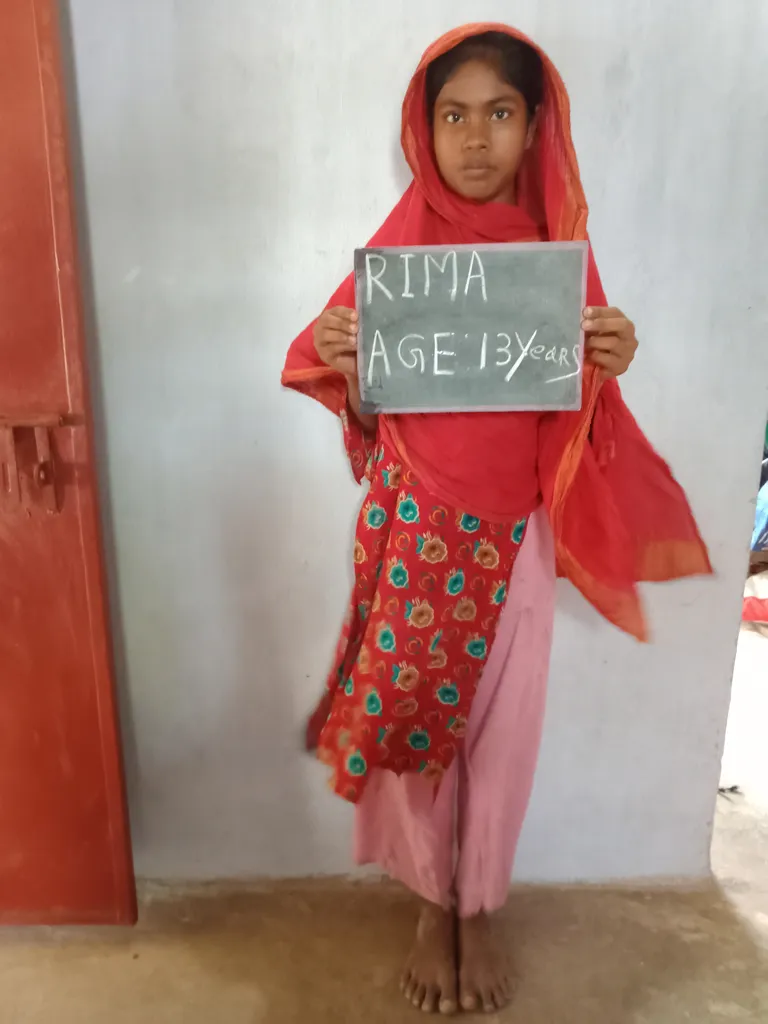 RIMA
AGE: 13 Years